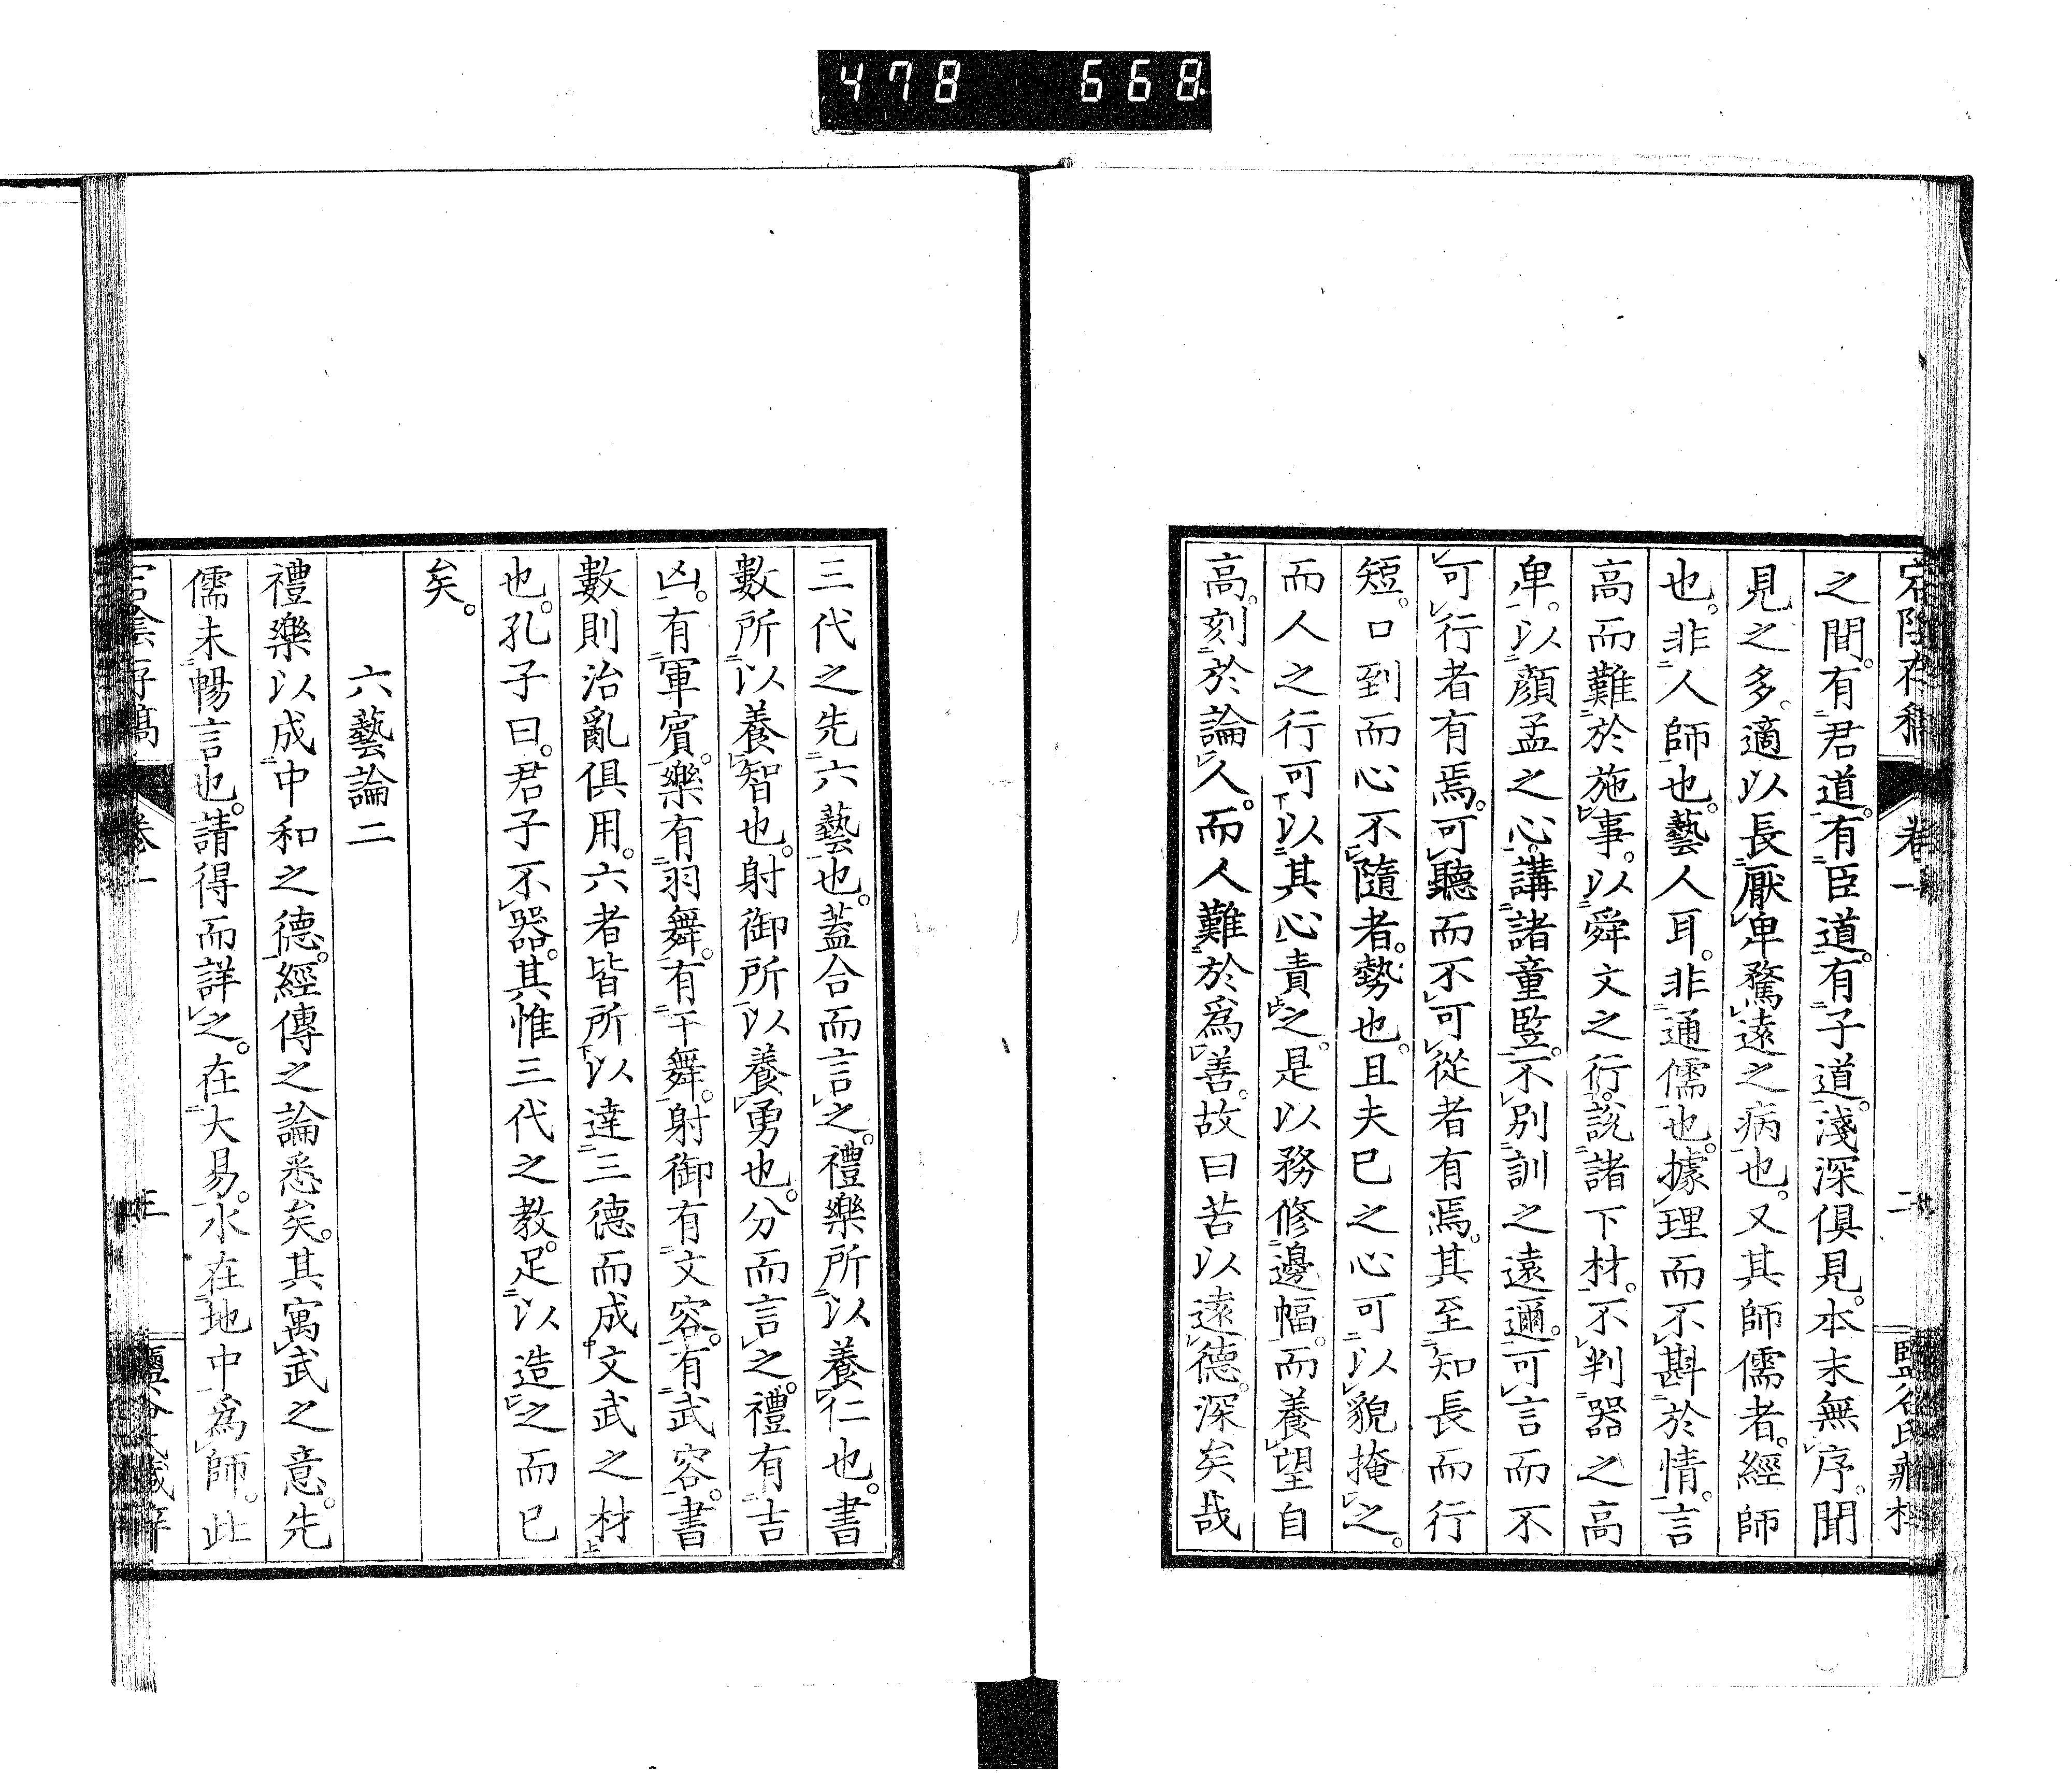 478 668
宕陰存稿 卷一 二 鹽谷氏藏梓
之間。有君道。有臣道。有子道。淺深俱見。本末無序。聞
見之多。適以長厭卑騖遠之病也。又其師儒者。經師
也。非人師也。藝人耳。非通儒也。據理而不斟於情。言
高而難於施事。以舜文之行。說諸下材。不判器之高
卑。以顏孟之心。講諸童豎。不別訓之遠邇。可言而不
可行者有焉。可聽而不可從者有焉。其至知長而行
短。口到而心不隨者。勢也。且夫已之心可以貌掩之。
而人之行可以其心責之。是以務修邊幅。而養望自
高。刻於論人。而人難於爲善。故曰苦以遠德。深矣哉
三代之先六藝也。蓋合而言之。禮樂所以養仁也。書
數所以養智也。射御所以養勇也。分而言之。禮有吉
凶。有軍賓。樂有羽舞。有干舞。射御有文容。有武容。書
數則治亂俱用。六者皆所以達三德而成文武之材
也。孔子曰。君子不器。其惟三代之教。足以造之而已
矣。
六藝論二
禮樂以成中和之德。經傳之論悉矣。其寓武之意。先
儒未暢言也。請得而詳之。在大易。水在地中爲師。此
宕陰存稿 卷一 三 鹽谷氏藏梓